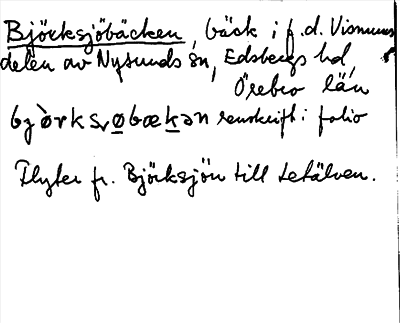 Björksjöbäcken, bäck i f.d. Visnums
delen av Nysunds sn, Edsbergs hd,
Örebro län
renskrift i folio
Flyter fr. Björksjön till Letälven.